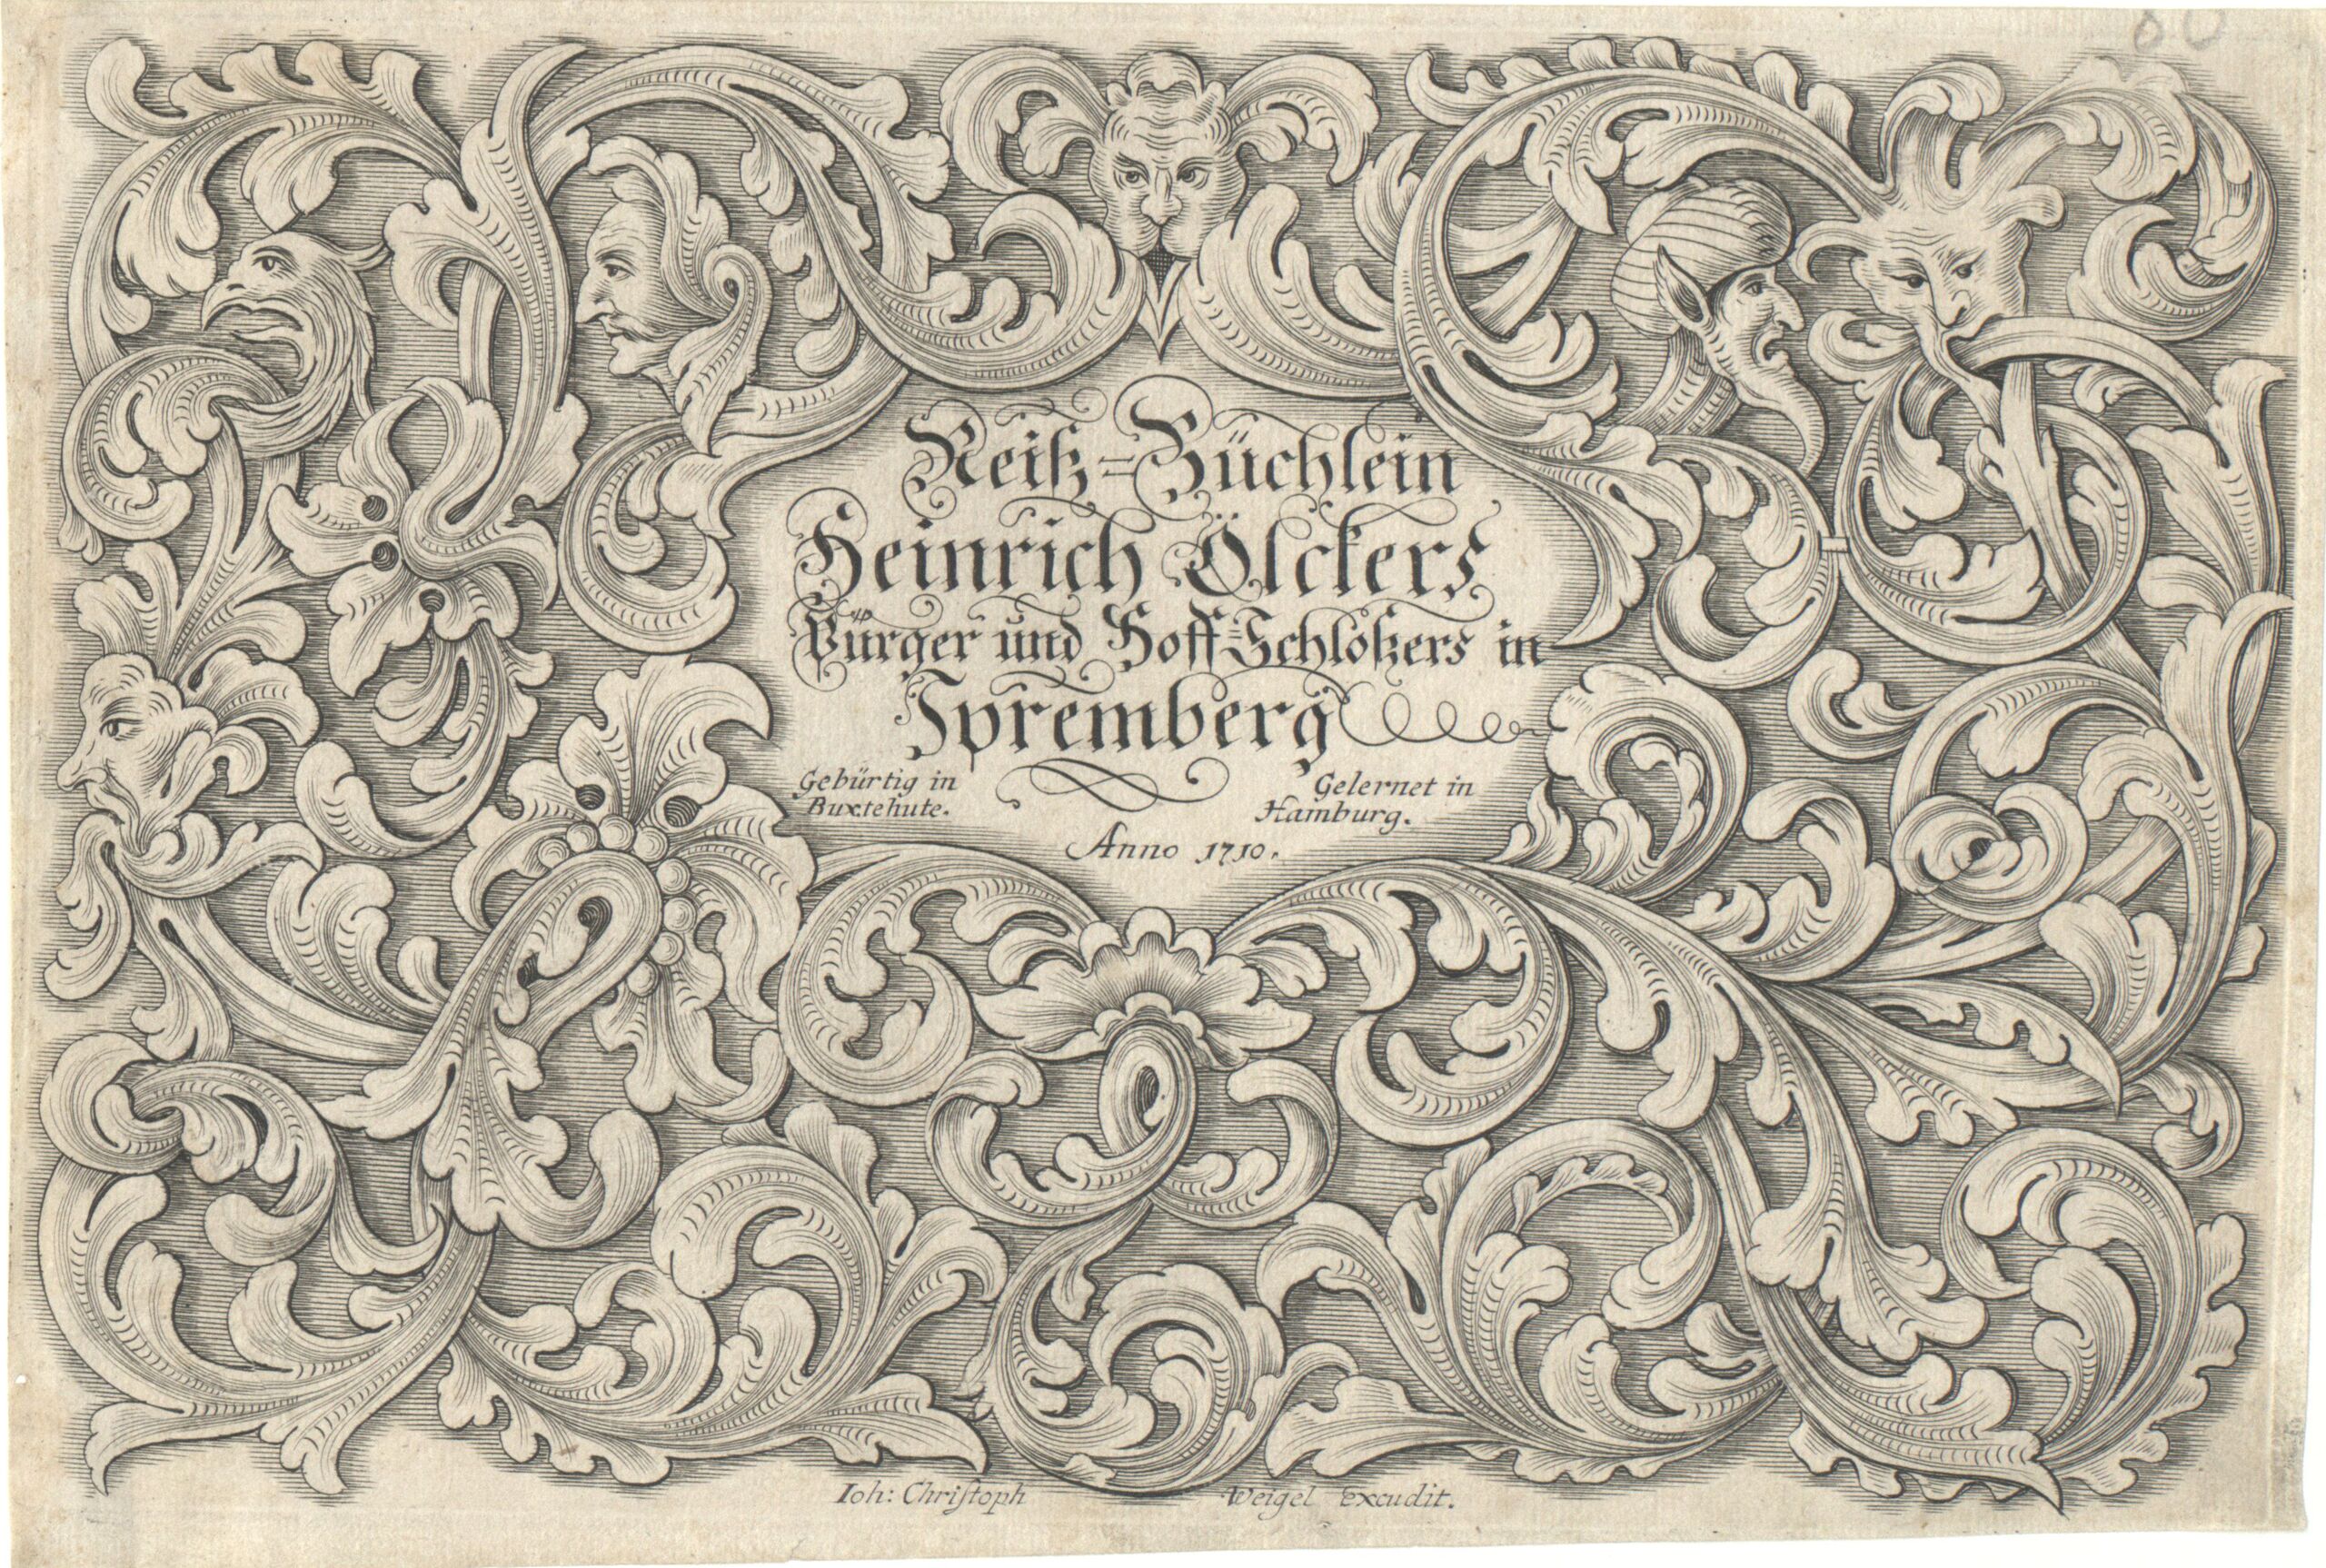 Reiß=Büchlein
Heinrich Ölckers
Burger und Hoff=Schlößers in
Spremberg
Gebürtig in Gelernet in
Buxtehute. Hamburg.
Anno 1710.
Ioh: Chriſtoph Weigel excudit.
80